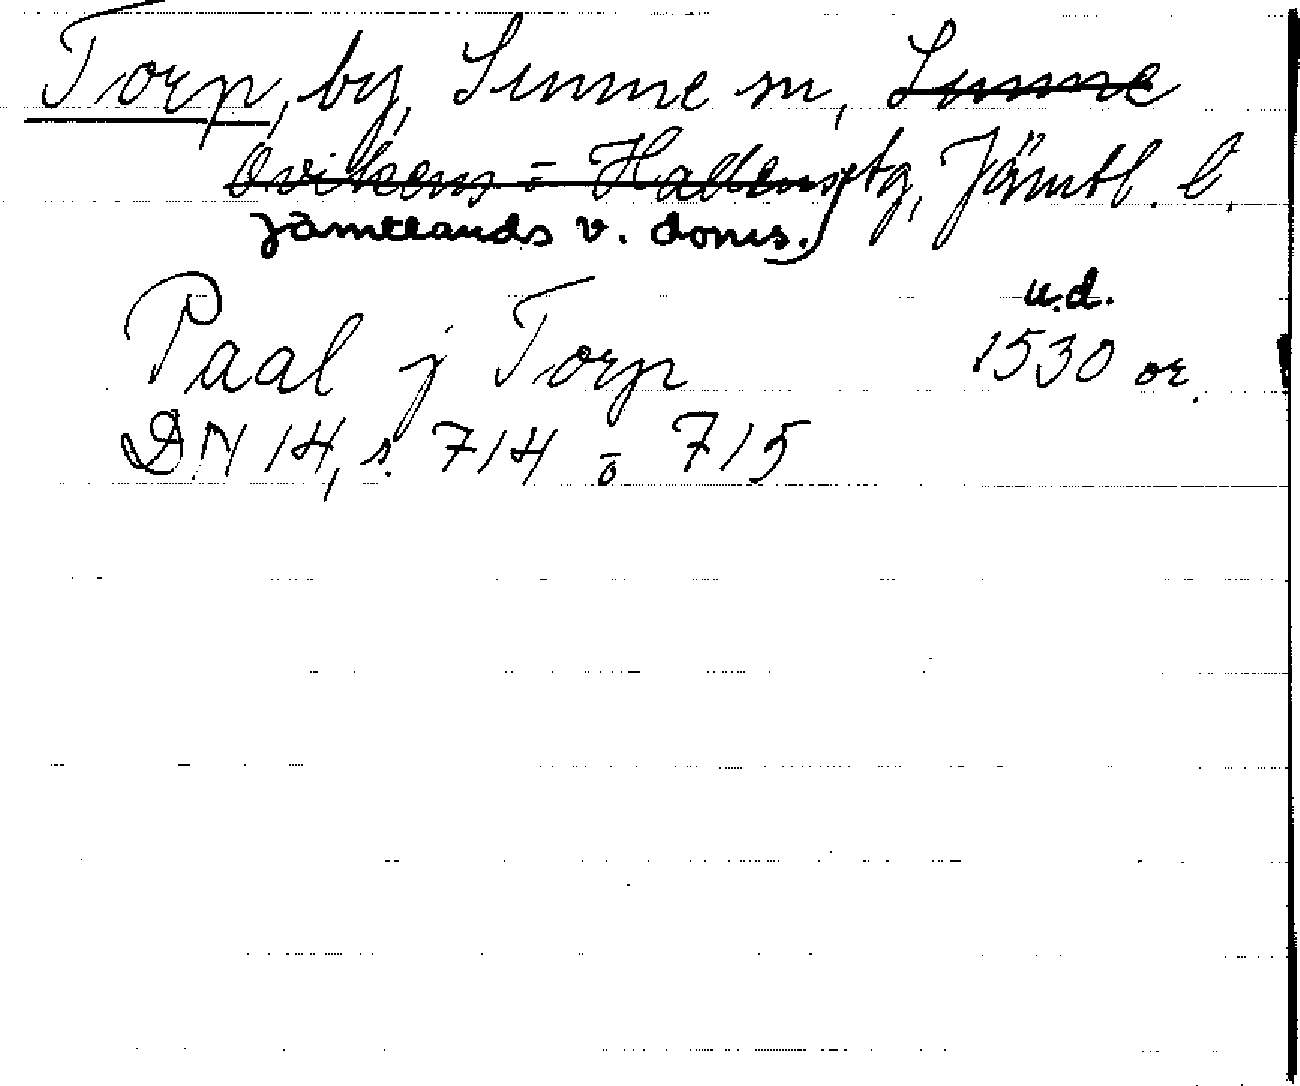 Torp, by, Sunne sn, Sunne
Ovikens = Hallens tg, Jämtl. l.
Jämtlands v. doms.
u.d.
Paal j Torp 1530 or.
DN 14, s. 714 o 715